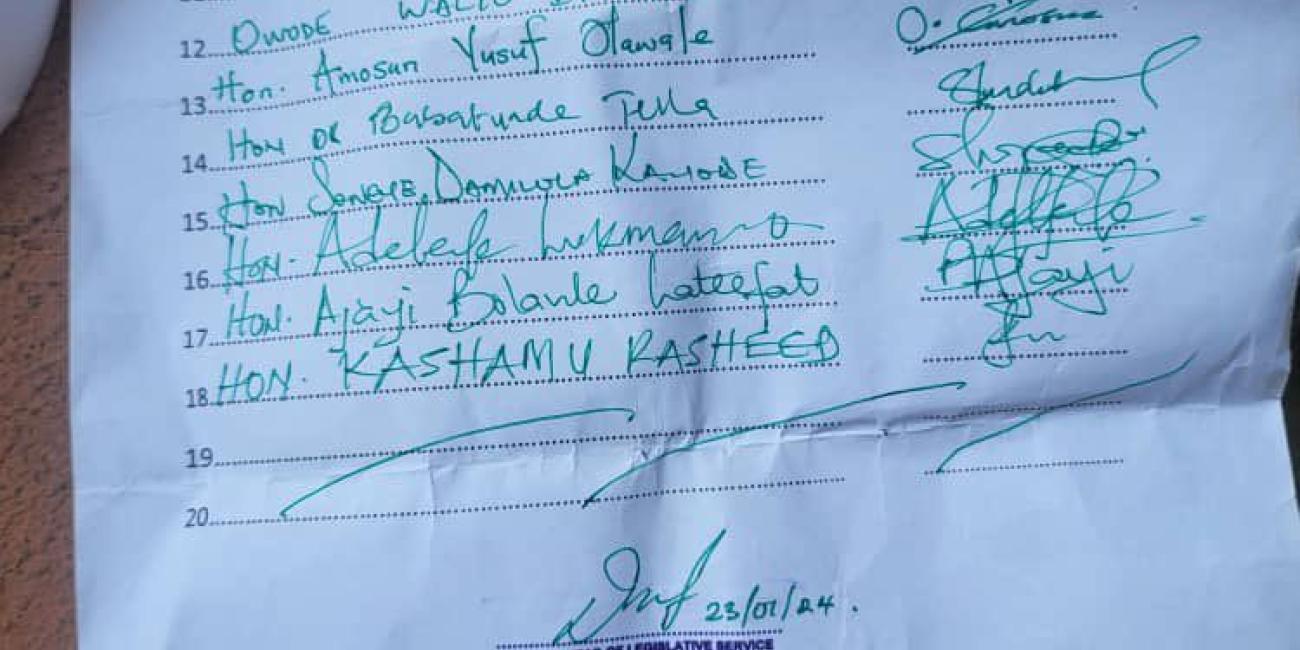 12 OWODE WALIU
13 Hon. Amosun Yusuf Olawale
14 HON DR Babatunde Tella
15 HON SONEYE, DAMILOLA KAYODE
16 HON. Lukman O
17 HON. Ajayi Bolanle Lateefat Ajayi
18 HON. KASHAMU RASHEED
19
20
23/01/24.
OF LEGISLATIVE SERVICE